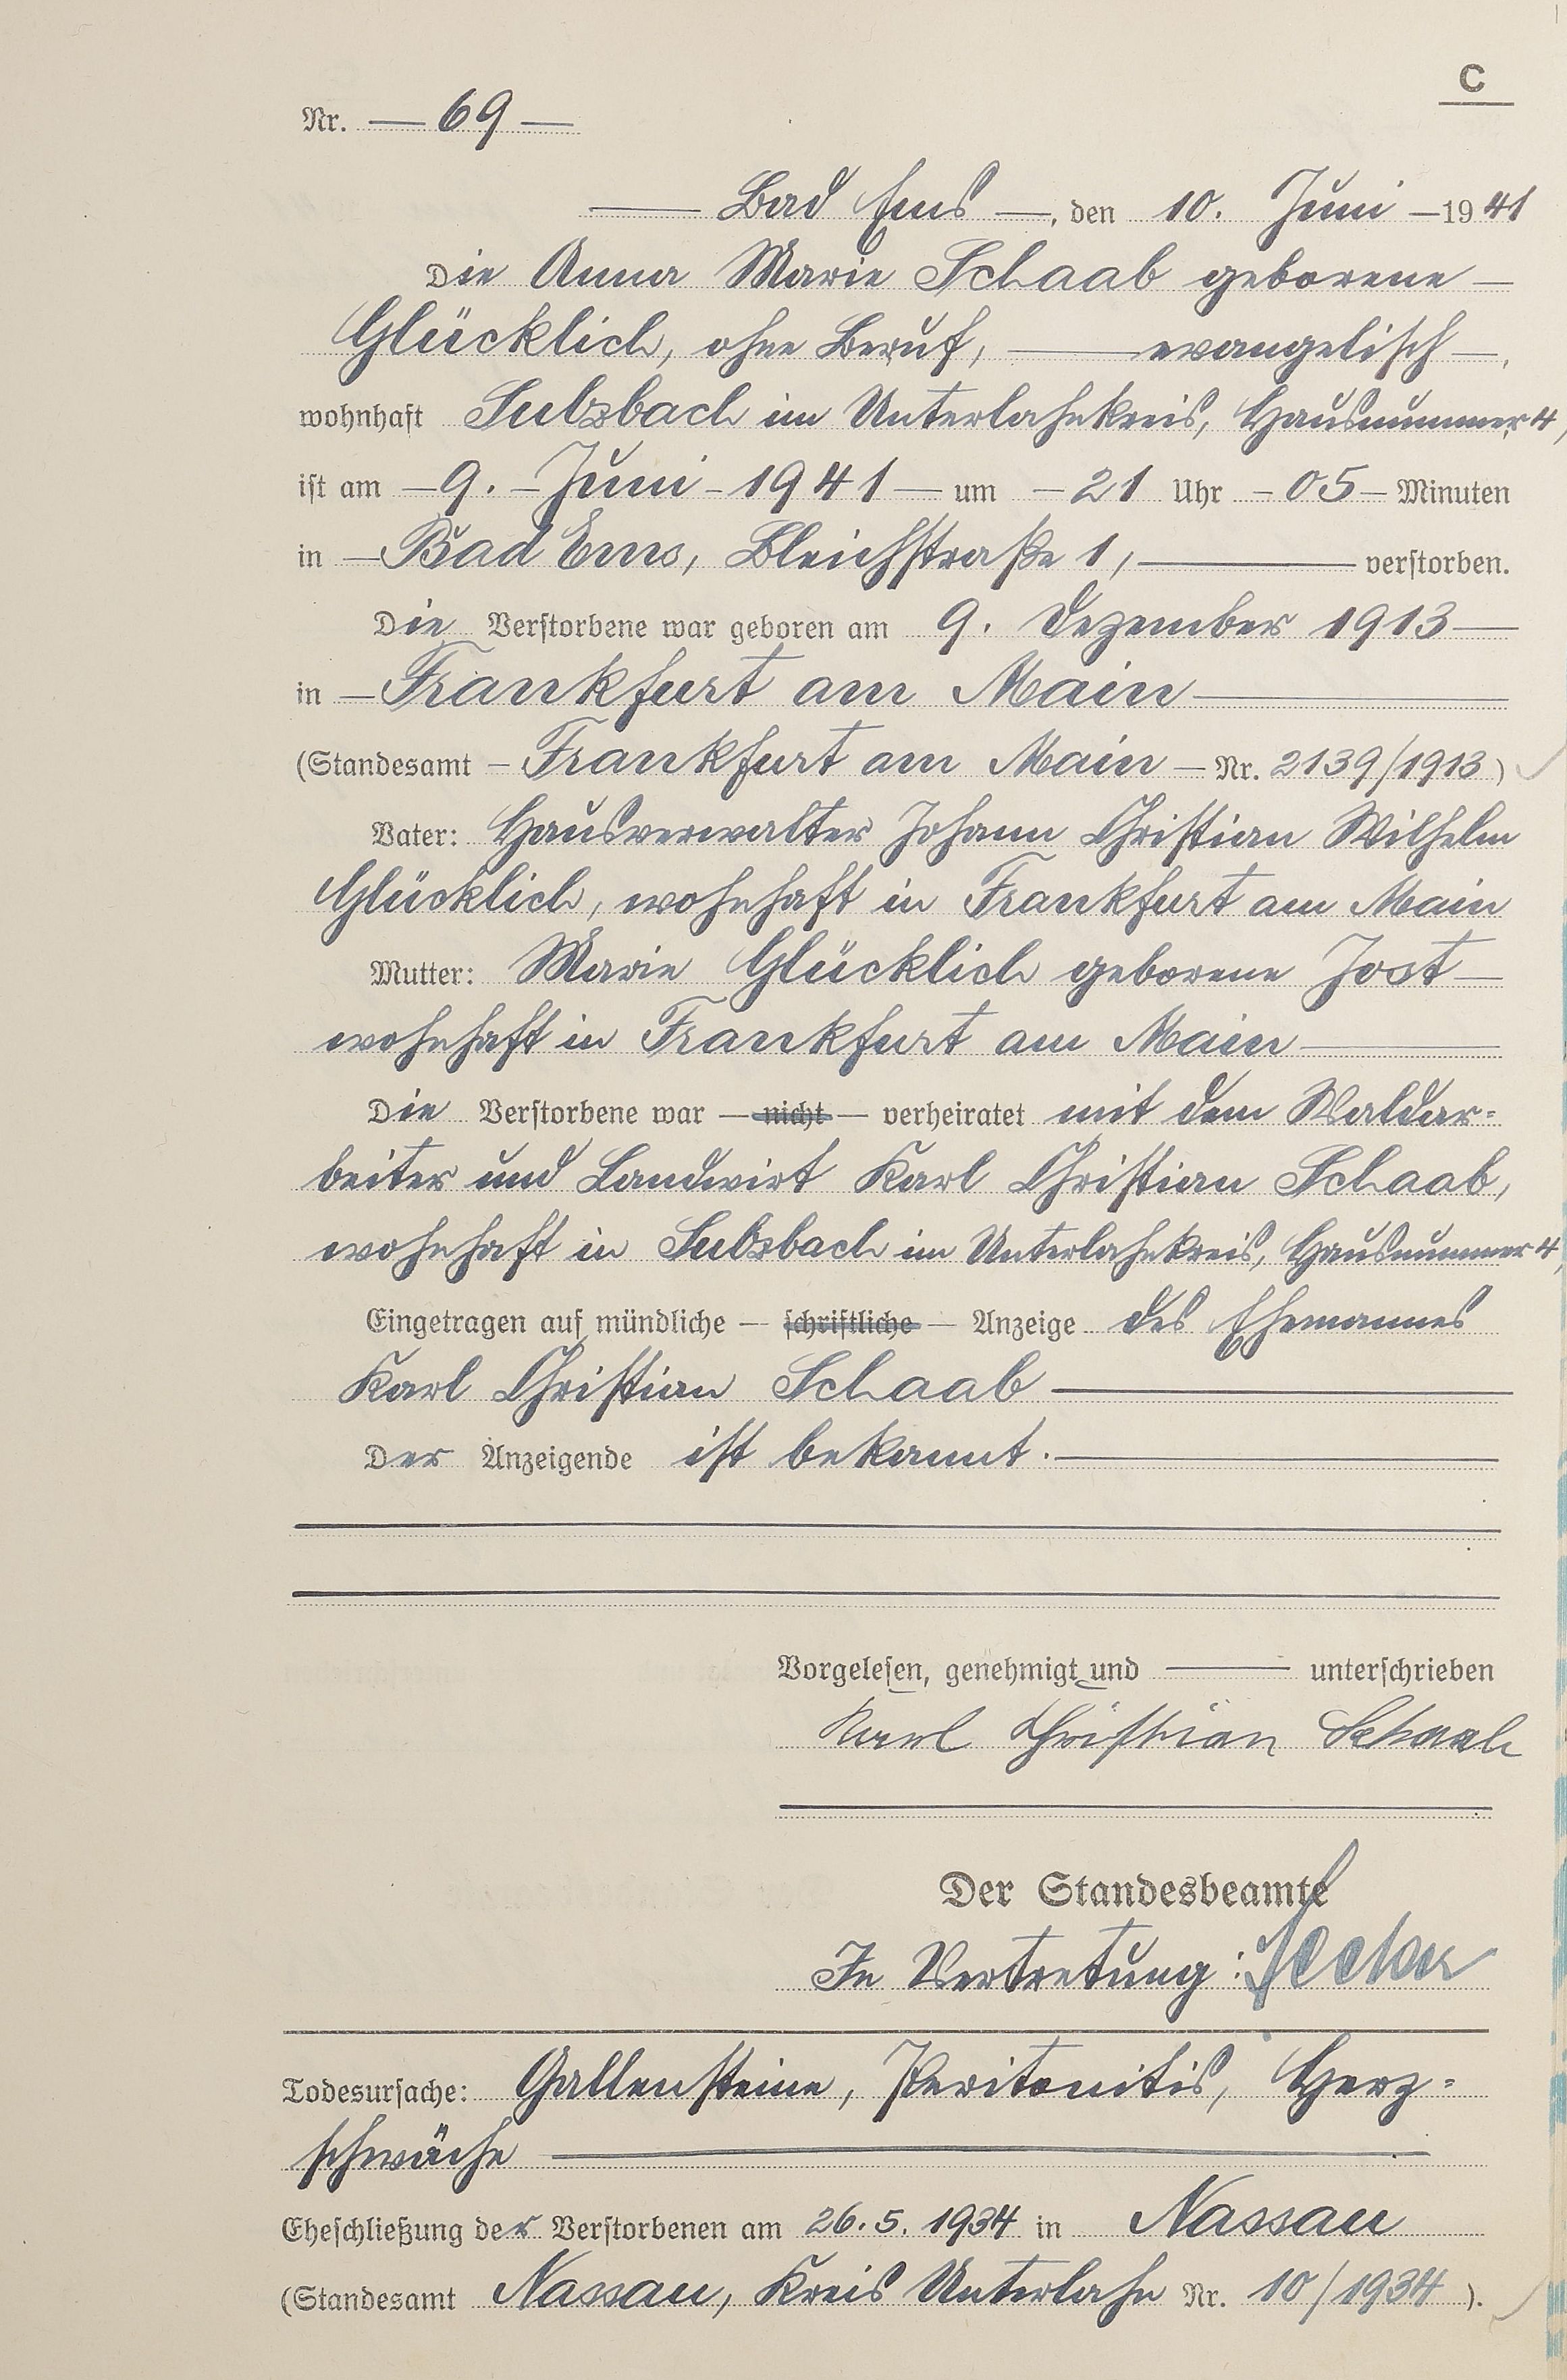 C
Nr. — 69 —
— Bad Ems —, den 10. Juni — 1941
Die Anna Marie Schaab geborene —
Glücklich, ohne Beruf, — evangelisch —,
wohnhaft Sulzbach im Unterlahnkreis, Hausnummer 4,
ist am — 9. — Juni — 1941 — um — 21 Uhr — 05 — Minuten
in — Bad Ems, Bleichstraße 1, — verstorben.
Die Verstorbene war geboren am 9. Dezember 1913 —
in — Frankfurt am Main —
(Standesamt — Frankfurt am Main — Nr. 2139/1913)
Vater: Hausverwalter Johann Christian Wilhelm
Glücklich, wohnhaft in Frankfurt am Main
Mutter: Marie Glücklich geborene Jost —
wohnhaft in Frankfurt am Main —
Die Verstorbene war — nicht — verheiratet mit dem Waldar=
beiter und Landwirt Karl Christian Schaab,
wohnhaft in Sulzbach im Unterlahnkreis, Hausnummer 4,
Eingetragen auf mündliche — schriftliche — Anzeige des Ehemannes
Karl Christian Schaab —
Der Anzeigende ist bekannt. —
Vorgelesen, genehmigt und — unterschrieben
Karl Christian Schaab
Der Standesbeamte
In Vertretung:
Todesursache: Gallensteine, Peritonitis, Herz=
schwäche —
Eheschließung der Verstorbenen am 26.5.1934 in Nassau
(Standesamt Nassau, Kreis Unterlahn Nr. 10/1934).